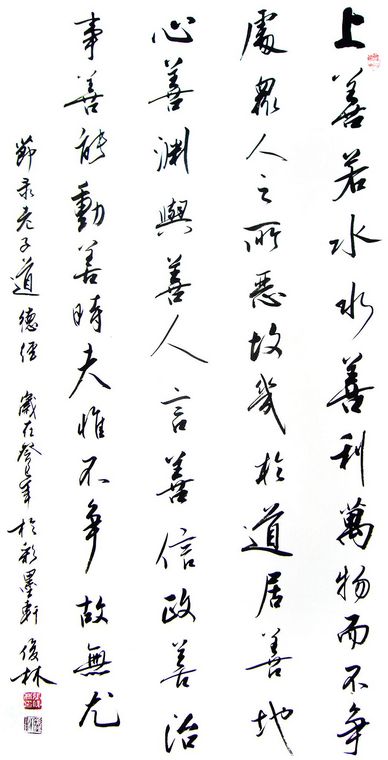 上善若水水善利萬物而不争
處衆人之所惡故幾於道居善地
心善渊與善人言善信政善治
事善能動善時夫惟不争故無尤
節录老子道德经 歲在癸年於彩墨軒 俊林